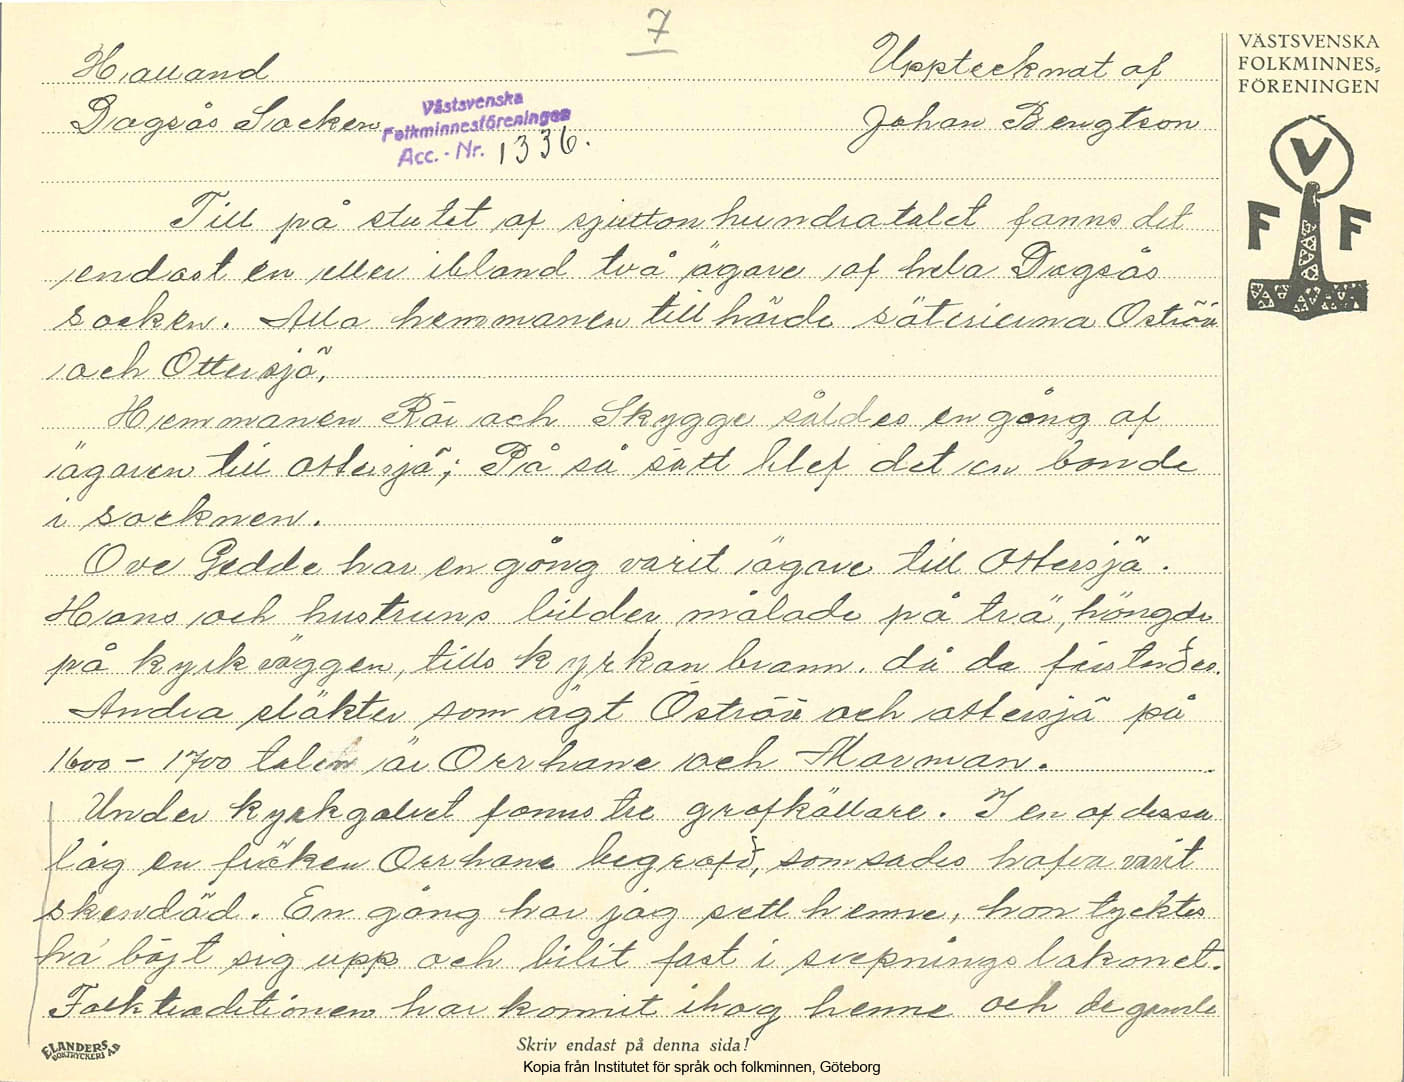 7
Halland
Uppteeknat af
VÄSTSVENSKA
FOLKMINNES-
FÖRENINGEN
Dagsås Socken
Västsvenska
Folkminnesföreningen
Acc. - Nr. 1336.
Johan Bengtson
V
F F
Till på slutet af sjuttonhundratalet fanns det
endast en eller ibland två ägare af hela Dagsås
socken. Alla hemmanen tillhörde säterierna Öströö
och Ottersjö.
Hemmanen Röi och Skygge såldes en gång af
ägaren till Ottersjö; På så sätt blef det en bonde
i socknen.
Ove Gedde har en gång varit ägare till Ottersjö.
Hans och hustruns bilder målade på trä, hängde
på kyrkväggen, tills kyrkan brann. då de förstördes.
Andra släkter som ägt Öströö och Ottersjö på
1600 - 1700 talen är Orrhane och Marman.
Under kyrkgolvet fanns tre grafkällare. I en af dessa
låg en fröken Orrhane begrafd, som sades hafva varit
skendöd. En gång har jag sett henne, hon tycktes
ha böjt sig upp och bilit fast i svepningslakanet.
Folktraditionen har kommit ihog henne och de gamle
ELANDERS
BOKTRYCKERI AB
Skriv endast på denna sida!
Kopia från Institutet för språk och folkminnen, Göteborg